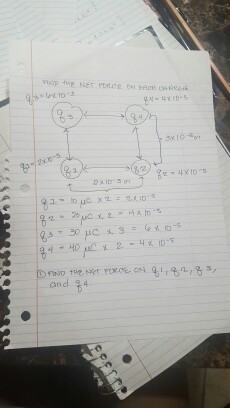 FIND THE NET FORCE ON EACH CHARGE
q3 = 6x10⁻⁵ q4 = 4x10⁻⁵
q3 q4
3x10⁻³ m
q1 = 2x10⁻⁵ q1 q2 q2 = 4x10⁻⁵
2x10⁻³ m
q1 = 10 μC x 2 = 2x10⁻⁵
q2 = 20 μC x 2 = 4x10⁻⁵
q3 = 30 μC x 3 = 6x10⁻⁵
q4 = 40 μC x 2 = 4x10⁻⁵
① FIND THE NET FORCE ON q1, q2, q3,
and q4